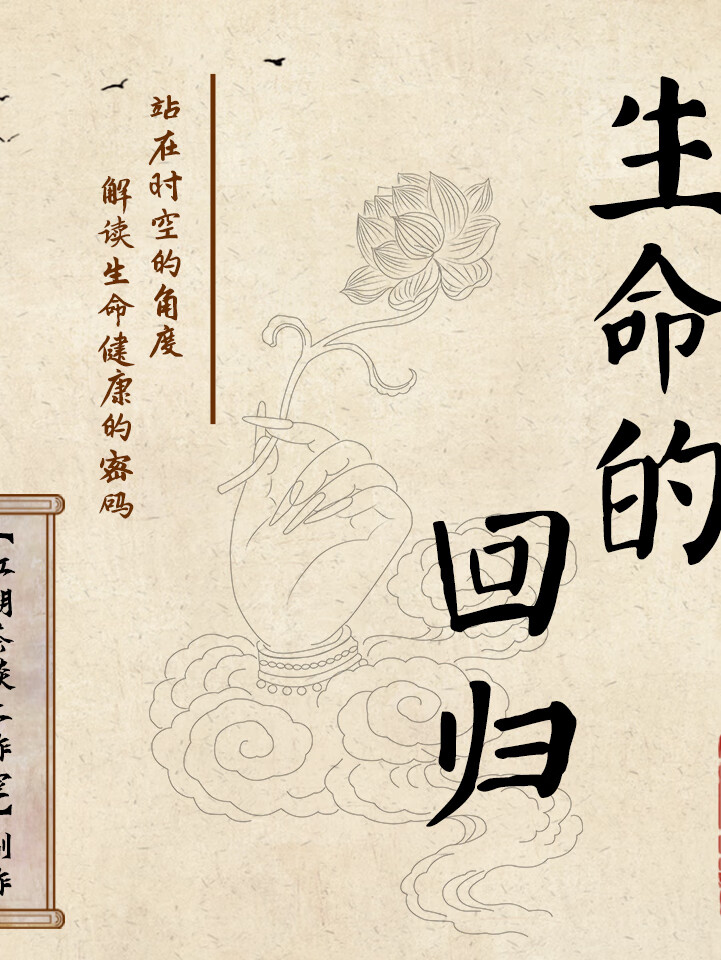 生命的
回归
站在时空的角度
解读生命健康的密码
工作室】制作